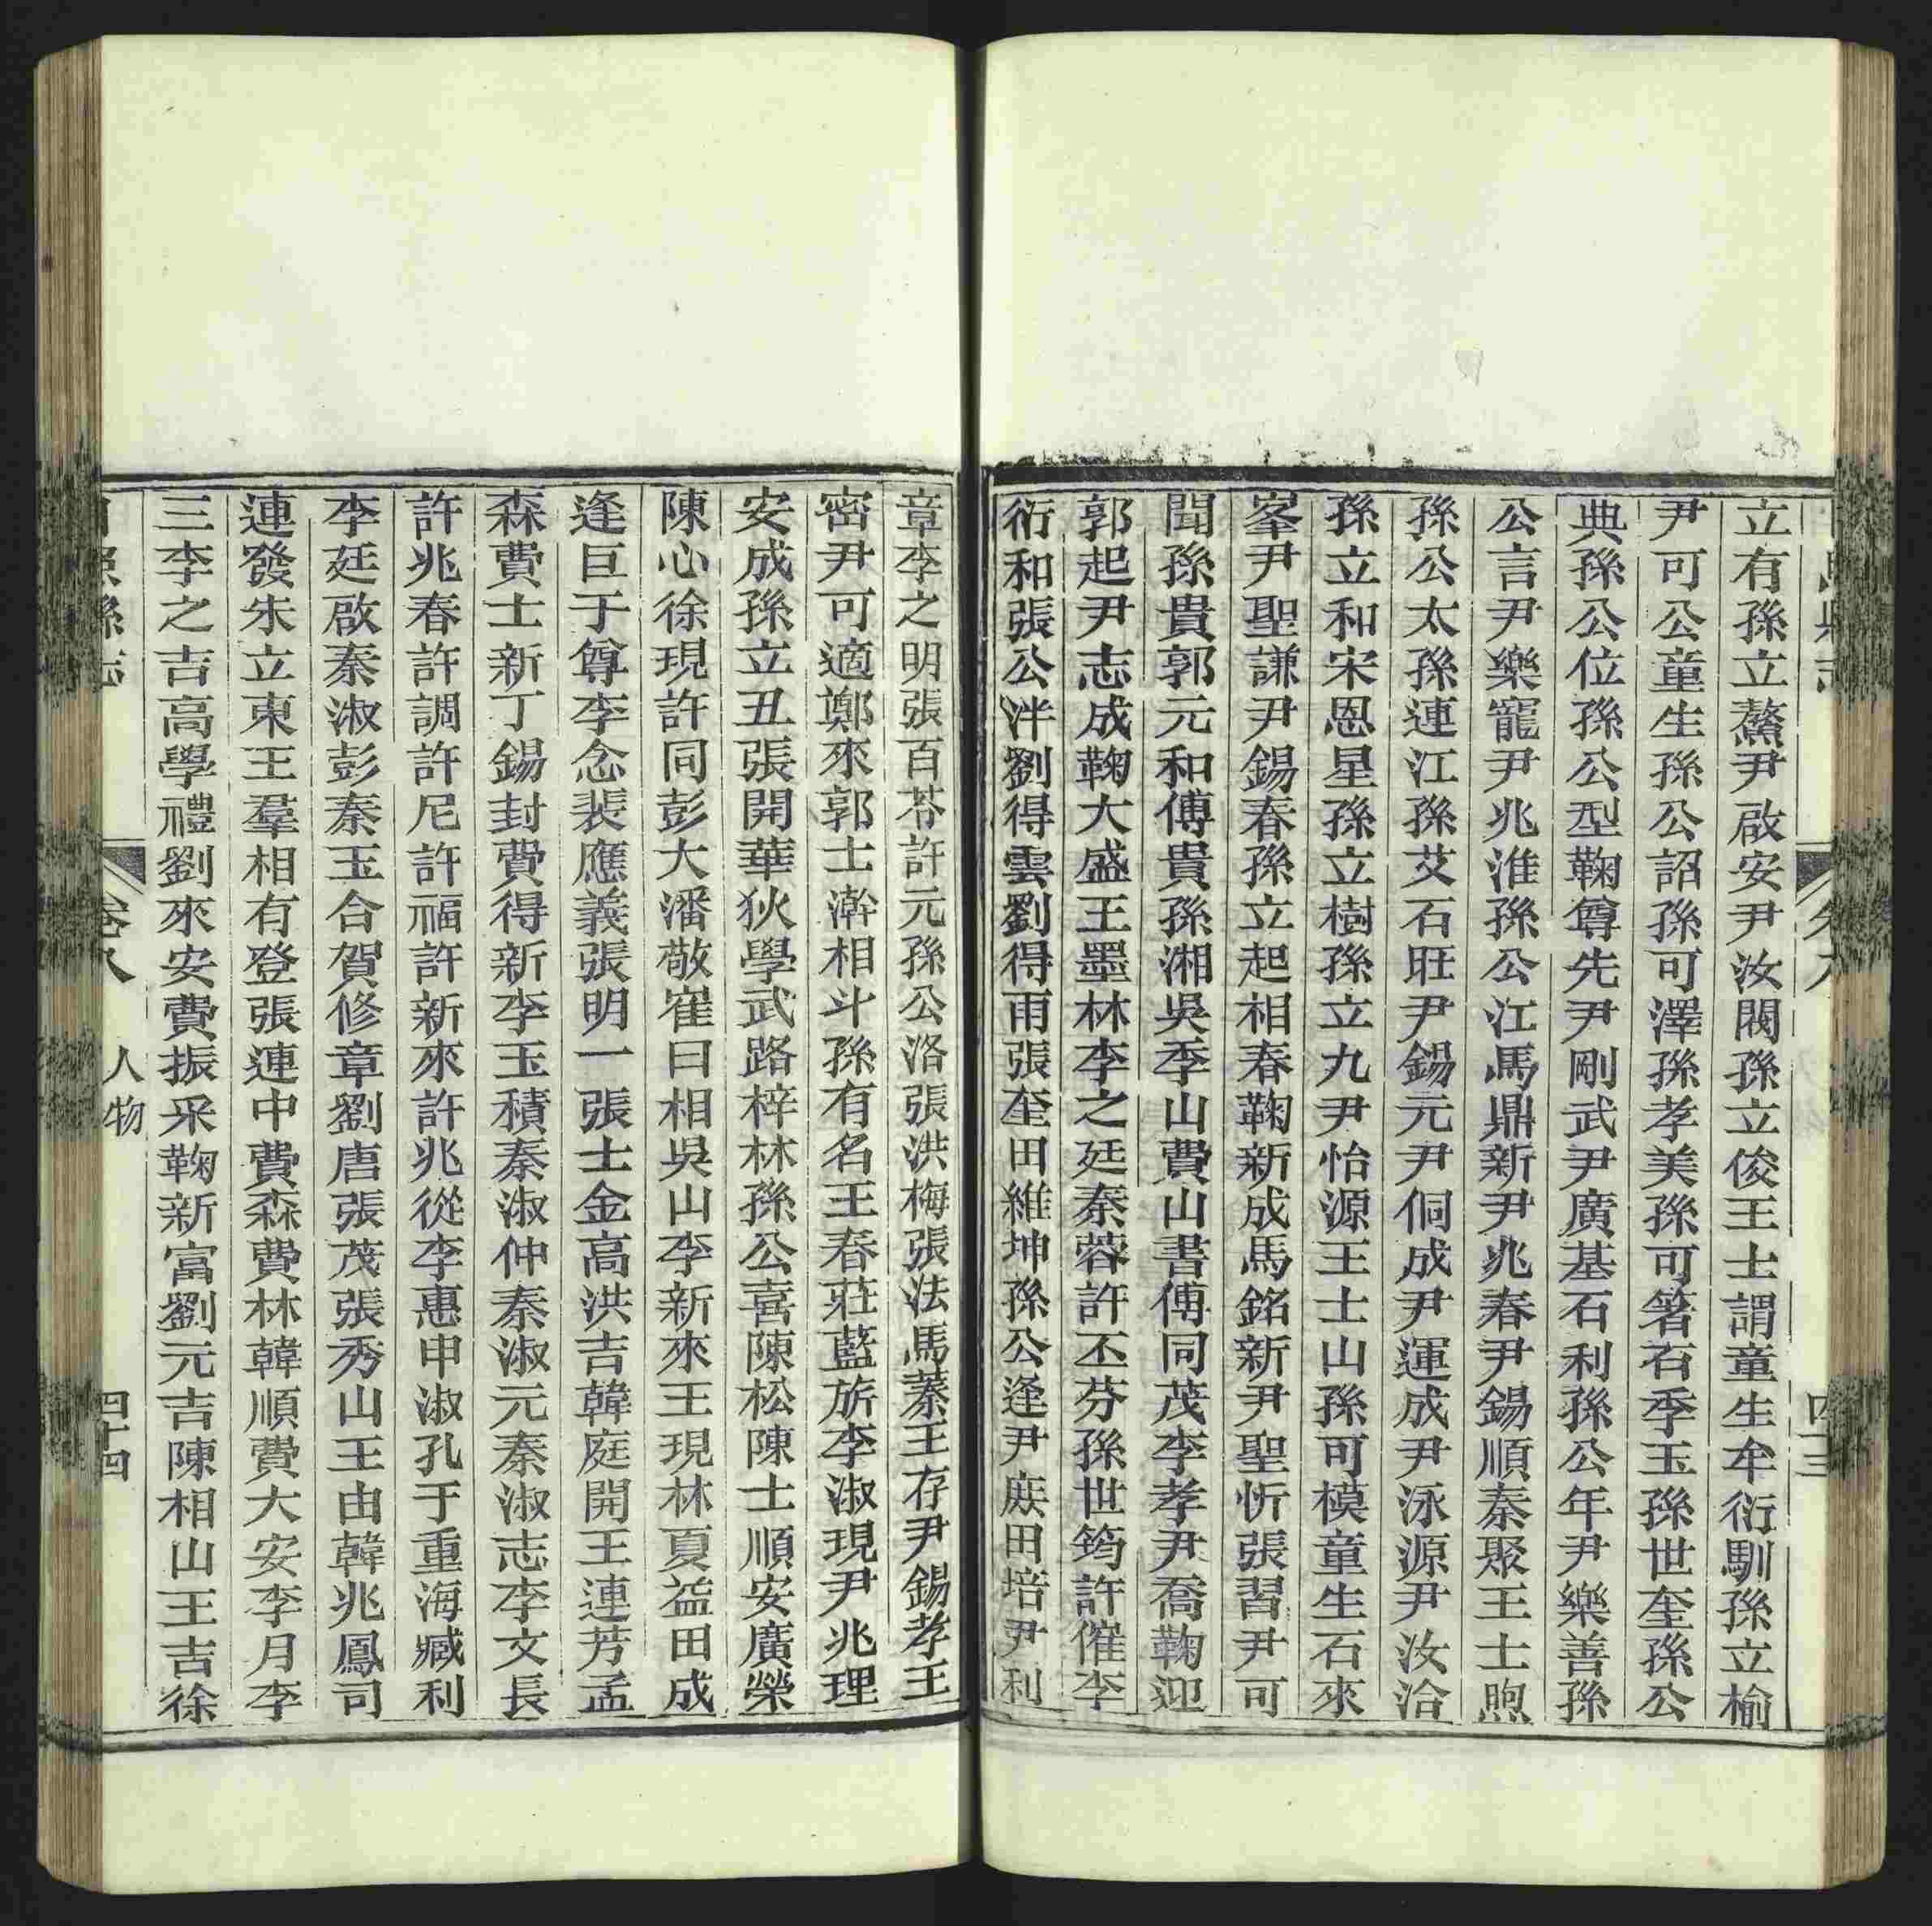 立有孫立鰲尹啟安尹汝閥孫立俊王士謂童生牟衍馴孫立榆
尹可公童生孫公詔孫可澤孫孝美孫可箬石季玉孫世奎孫公
典孫公位孫公型鞠尊先尹剛武尹廣基石利孫公年尹樂善孫
公言尹樂寵尹兆淮孫公江馬鼎新尹兆春尹錫順秦聚王士煦
孫公太孫連江孫艾石旺尹錫元尹侗成尹運成尹泳源尹汝洽
孫立和宋恩星孫立樹孫立九尹怡源王士山孫可模童生石來
峯尹聖謙尹錫春孫立起相春鞠新成馬銘新尹聖忻張習尹可
聞孫貴郭元和傅貴孫湘吳季山費山書傅同茂李孝尹喬鞠迎
郭起尹志成鞠大盛王墨林李之廷秦蓉許丕芬孫世筠許催李
衍和張公泮劉得雲劉得雨張奎田維坤孫公逢尹庶田培尹利
四十三
章李之明張百苓許元孫公洛張洪梅張法馬蓁王存尹錫孝王
密尹可適鄭來郭士瀚相斗孫有名王春莊藍旂李淑現尹兆理
安成孫立丑張開華狄學武路梓林孫公喜陳松陳士順安廣榮
陳心徐現許同彭大潘敬崔曰相吳山李新來王現林夏益田成
逢巨于尊李念裴應義張明一張士金高洪吉韓庭開王連芳孟
森費士新丁錫封費得新李玉積秦淑仲秦淑元秦淑志李文長
許兆春許調許尼許福許新來許兆從李惠申淑孔于重海臧利
李廷啟秦淑彭秦玉合賀修章劉唐張茂張秀山王由韓兆鳳司
連發朱立東王羣相有登張連中費森費林韓順費大安李月李
三李之吉高學禮劉來安費振采鞠新富劉元吉陳相山王吉徐
日照縣志 卷八 人物 四十四